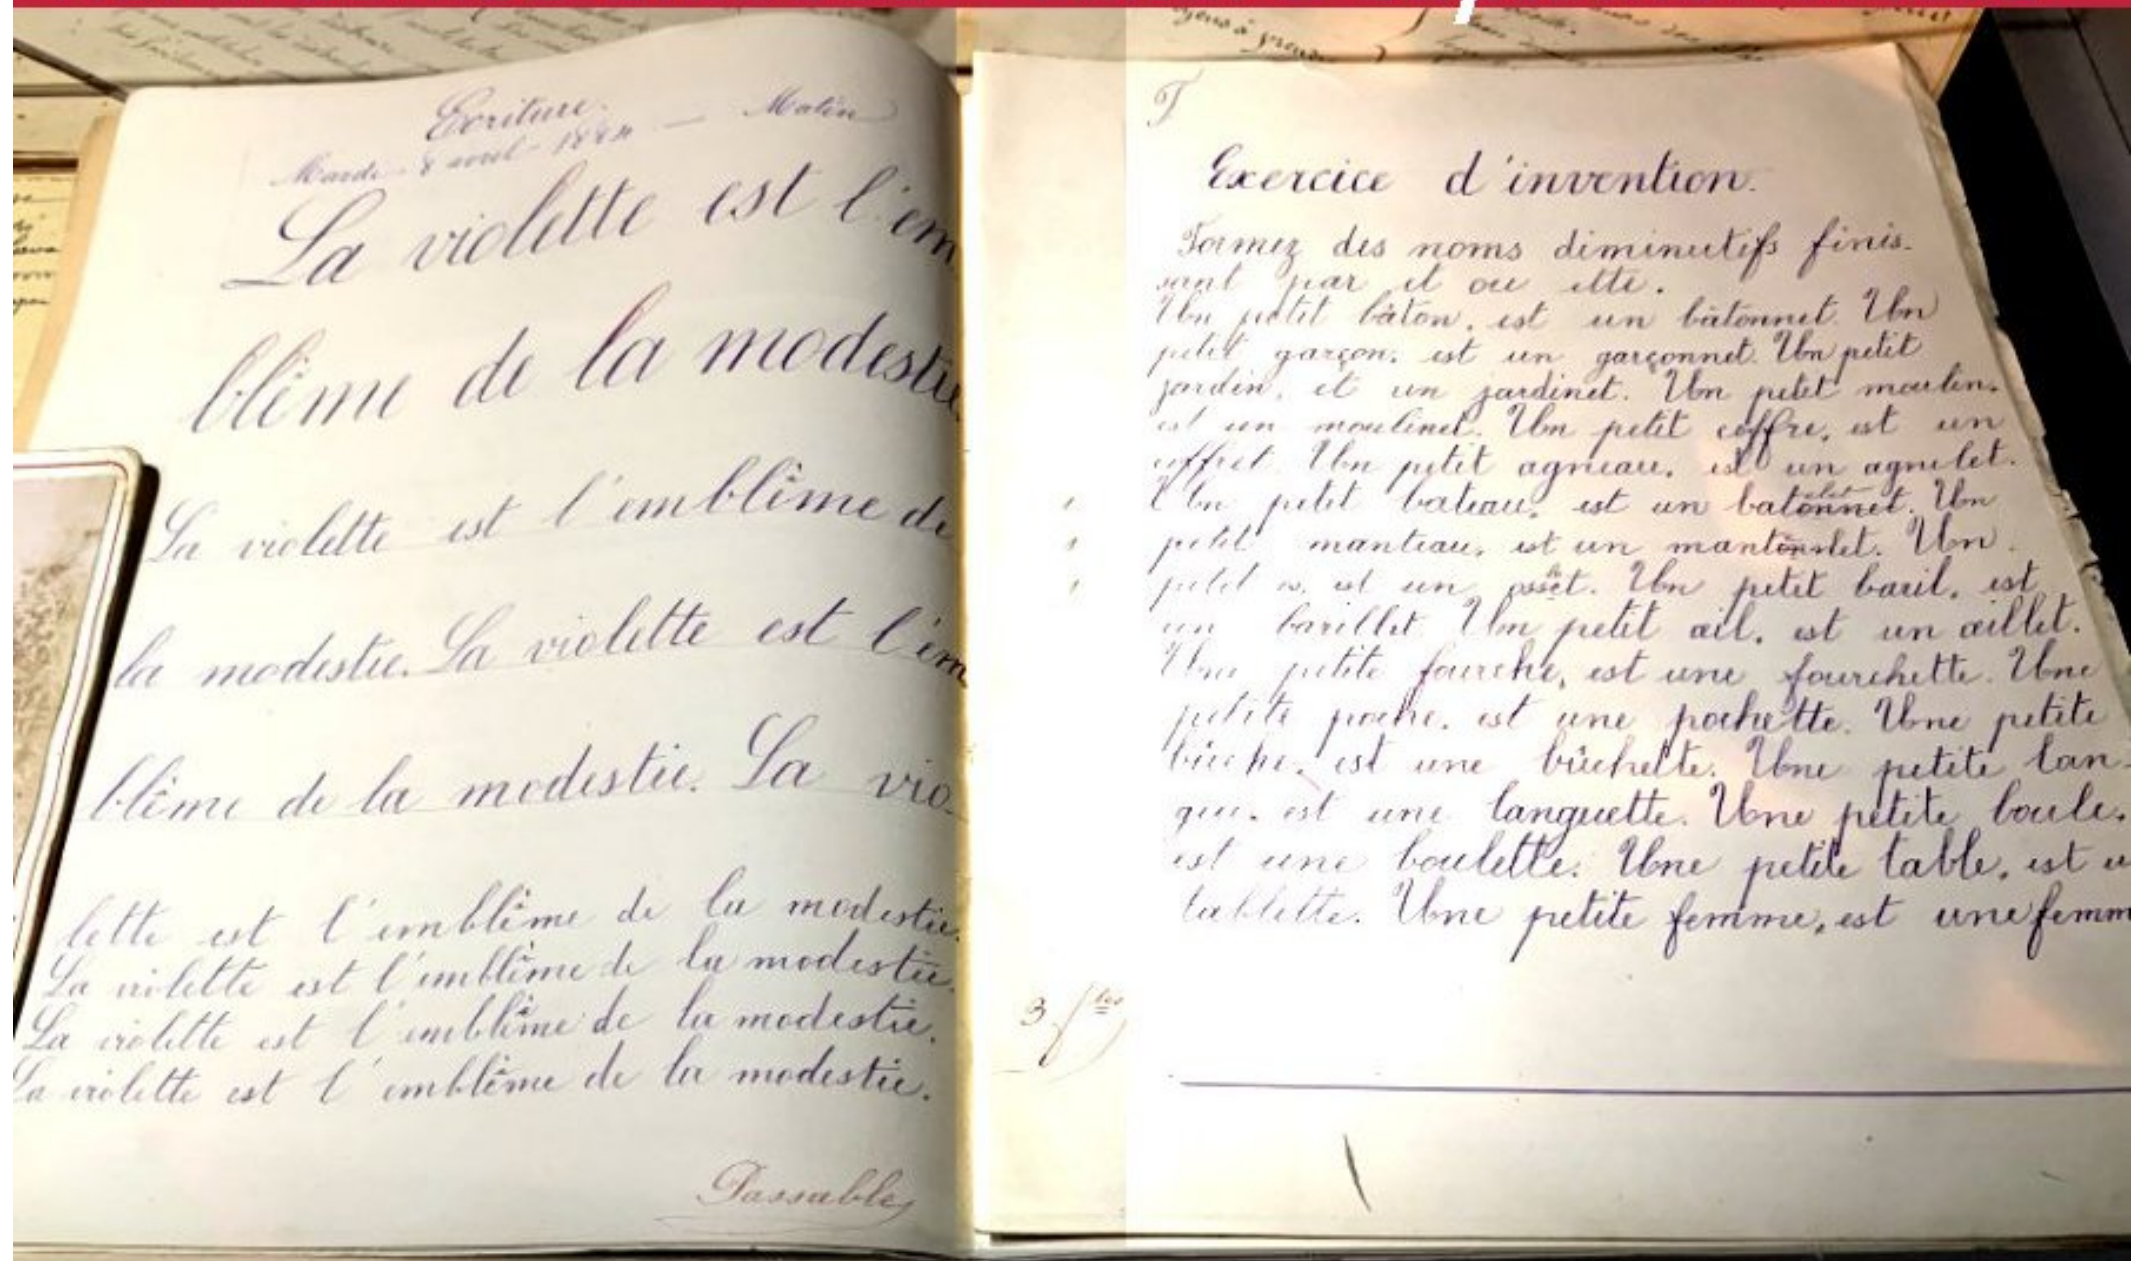 Ecriture.
Mardi 8 avril 1884 — Matin
La violette est l'em
blême de la modestie.
La violette est l'emblême de
la modestie. La violette est l'em
blême de la modestie. La vio
lette est l'emblême de la modestie.
La violette est l'emblême de la modestie.
La violette est l'emblême de la modestie.
La violette est l'emblême de la modestie.
Passable
T
Exercice d'invention.
Formez des noms diminutifs finis-
sant par et ou ette.
Un petit bâton, est un bâtonnet. Un
petit garçon, est un garçonnet. Un petit
jardin, et un jardinet. Un petit moulin,
est un moulinet. Un petit coffre, est un
coffret. Un petit agneau, est un agnelet.
Un petit bateau, est un batonnet. Un
petit manteau, est un mantelet. Un
petit os, est un osset. Un petit baril, est
un barillet. Un petit œil, est un œillet.
Une petite fourche, est une fourchette. Une
petite poche, est une pochette. Une petite
bûche, est une bûchette. Une petite lan-
gue, est une languette. Une petite boule,
est une boulette. Une petite table, est u
tablette. Une petite femme, est une femm
3 f